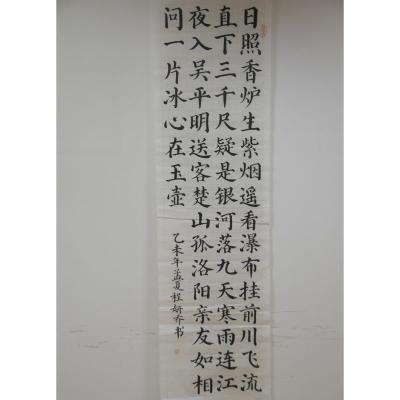 日照香炉生紫烟遥看瀑布挂前川飞流
直下三千尺疑是银河落九天寒雨连江
夜入吴平明送客楚山孤洛阳亲友如相
问一片冰心在玉壶
乙未年孟夏程妍乔书